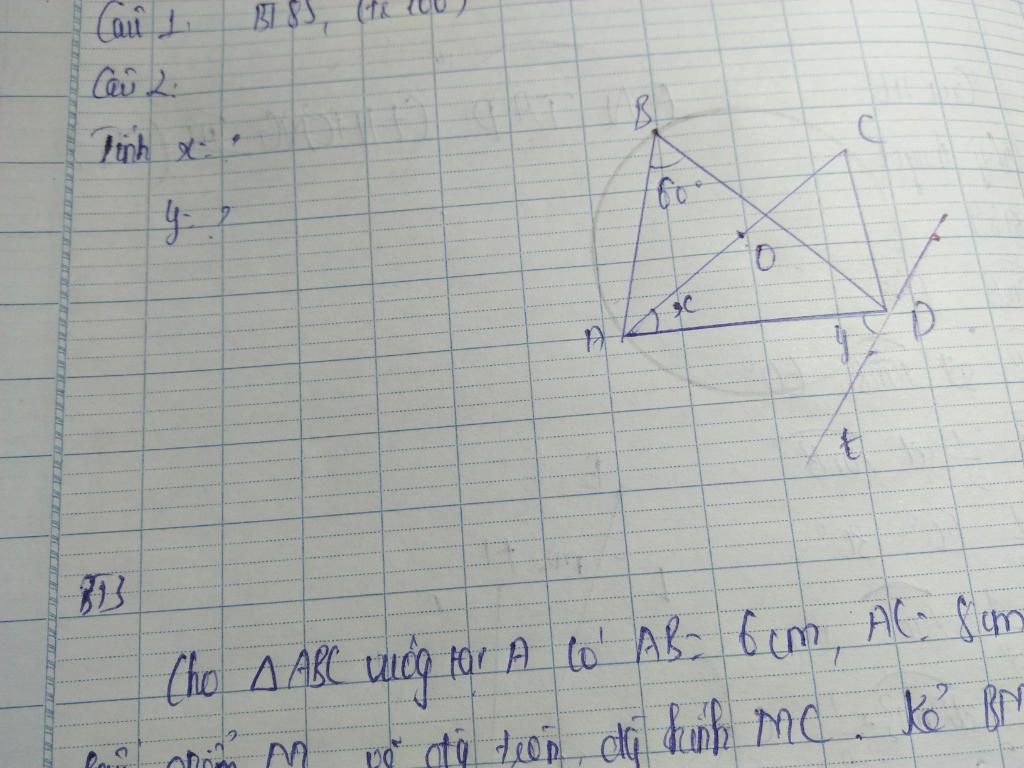 Câu 1. BT 85,
Câu 2.
Tính x = ?
y = ?
B
C
60°
O
x
A
D
y
t
BT3
Cho △ABC vuông tại A có AB = 6cm, AC = 8cm
M vẽ đg tròn đg kính MC. Kẻ BM